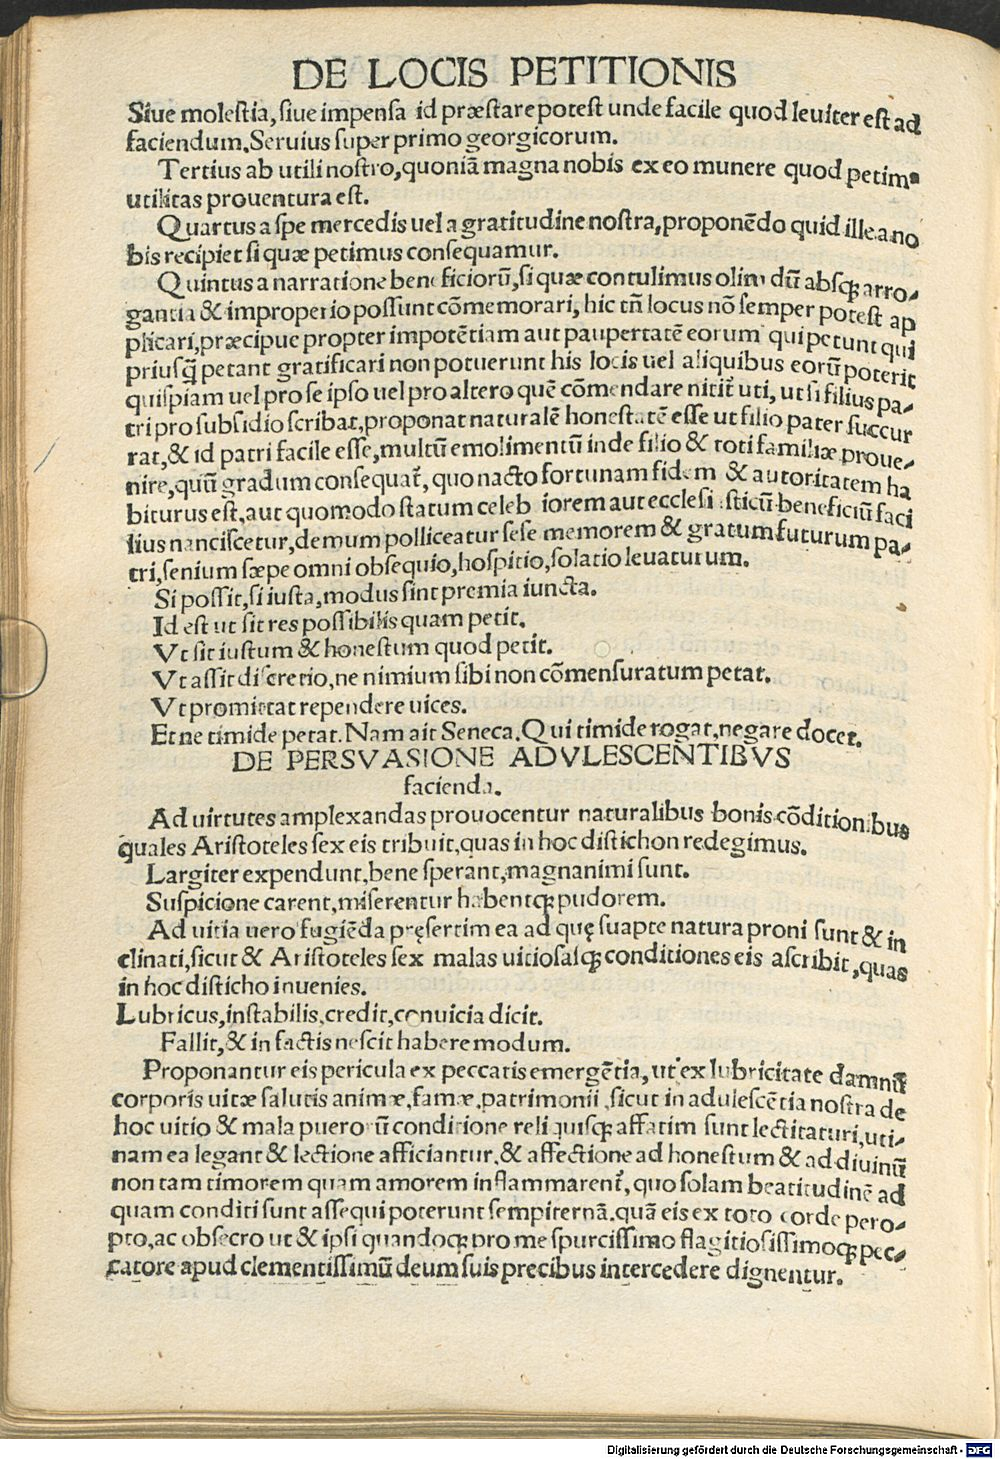 DE LOCIS PETITIONIS
Siue molestia, siue impensa id præstare potest unde facile quod leuiter est ad
faciendum. Seruius super primo georgicorum.
Tertius ab utili nostro, quoniā magna nobis ex eo munere quod petimꝰ
utilitas prouentura est.
Quartus a spe mercedis uel a gratitudine nostra, proponēdo quid ille a no
bis recipiet si quæ petimus consequamur.
Quintus a narratione beneficiorū, si quæ contulimus olim dū absqꝫ arro-
gantia & improperio possunt cōmemorari, hic tn̄ locus nō semper potest ap
plicari, præcipue propter impotētiam aut paupertatē eorum qui petunt qui
priusq̄ petant gratificari non potuerunt his locis uel aliquibus eorū poterit
quispiam uel pro se ipso uel pro altero quē cōmendare nitit᷑ uti, ut si filius pa-
tri pro subsidio scribat, proponat naturalē honestatē esse ut filio pater succur
rat, & id patri facile esse, multū emolimentū inde filio & toti familiæ proue-
nire, quū gradum consequat᷑, quo nacto fortunam fidem & autoritatem ha
biturus est, aut quomodo statum celebriorem aut ecclesiasticū beneficiū faci
lius nanciscetur, demum polliceatur sese memorem & gratum futurum pa-
tri, senium sæpe omni obsequio, hospitio, solatio leuaturum.
Si possit, si iusta, modus sint premia iuncta.
Id est ut sit res possibilis quam petit.
Vt sit iustum & honestum quod petit.
Vt assit discretio, ne nimium sibi non cōmensuratum petat.
Vt promittat rependere uices.
Et ne timide petat. Nam ait Seneca. Qui timide rogat, negare docet.
DE PERSVASIONE ADVLESCENTIBVS
facienda.
Ad uirtutes amplexandas prouocentur naturalibus bonis cōditionibus
quales Aristoteles sex eis tribuit, quas in hoc distichon redegimus.
Largiter expendunt, bene sperant, magnanimi sunt.
Suspicione carent, miserentur habentqꝫ pudorem.
Ad uitia uero fugiēda pręsertim ea ad quę suapte natura proni sunt & in
clinati, sicut & Aristoteles sex malas uitiosasqꝫ conditiones eis ascribit, quas
in hoc disticho inuenies.
Lubricus, instabilis, credit, conuicia dicit.
Fallit, & in factis nescit habere modum.
Proponantur eis pericula ex peccatis emergētia, ut ex lubricitate damnū
corporis uitæ salutis animæ, famæ, patrimonii, sicut in adulescētia nostra de
hoc uitio & mala puerorū conditione reliquisqꝫ affatim sunt lectitaturi, uti-
nam ea legant & lectione afficiantur, & affectione ad honestum & ad diuinū
non tam timorem quam amorem inflammarent᷑, quo solam beatitudinē ad
quam conditi sunt assequi poterunt sempiternā. quā eis ex toto corde pero-
pto, ac obsecro ut & ipsi quandoqꝫ pro me spurcissimo flagitiosissimoqꝫ pec-
catore apud clementissimū deum suis precibus intercedere dignentur.
Digitalisierung gefördert durch die Deutsche Forschungsgemeinschaft - DFG